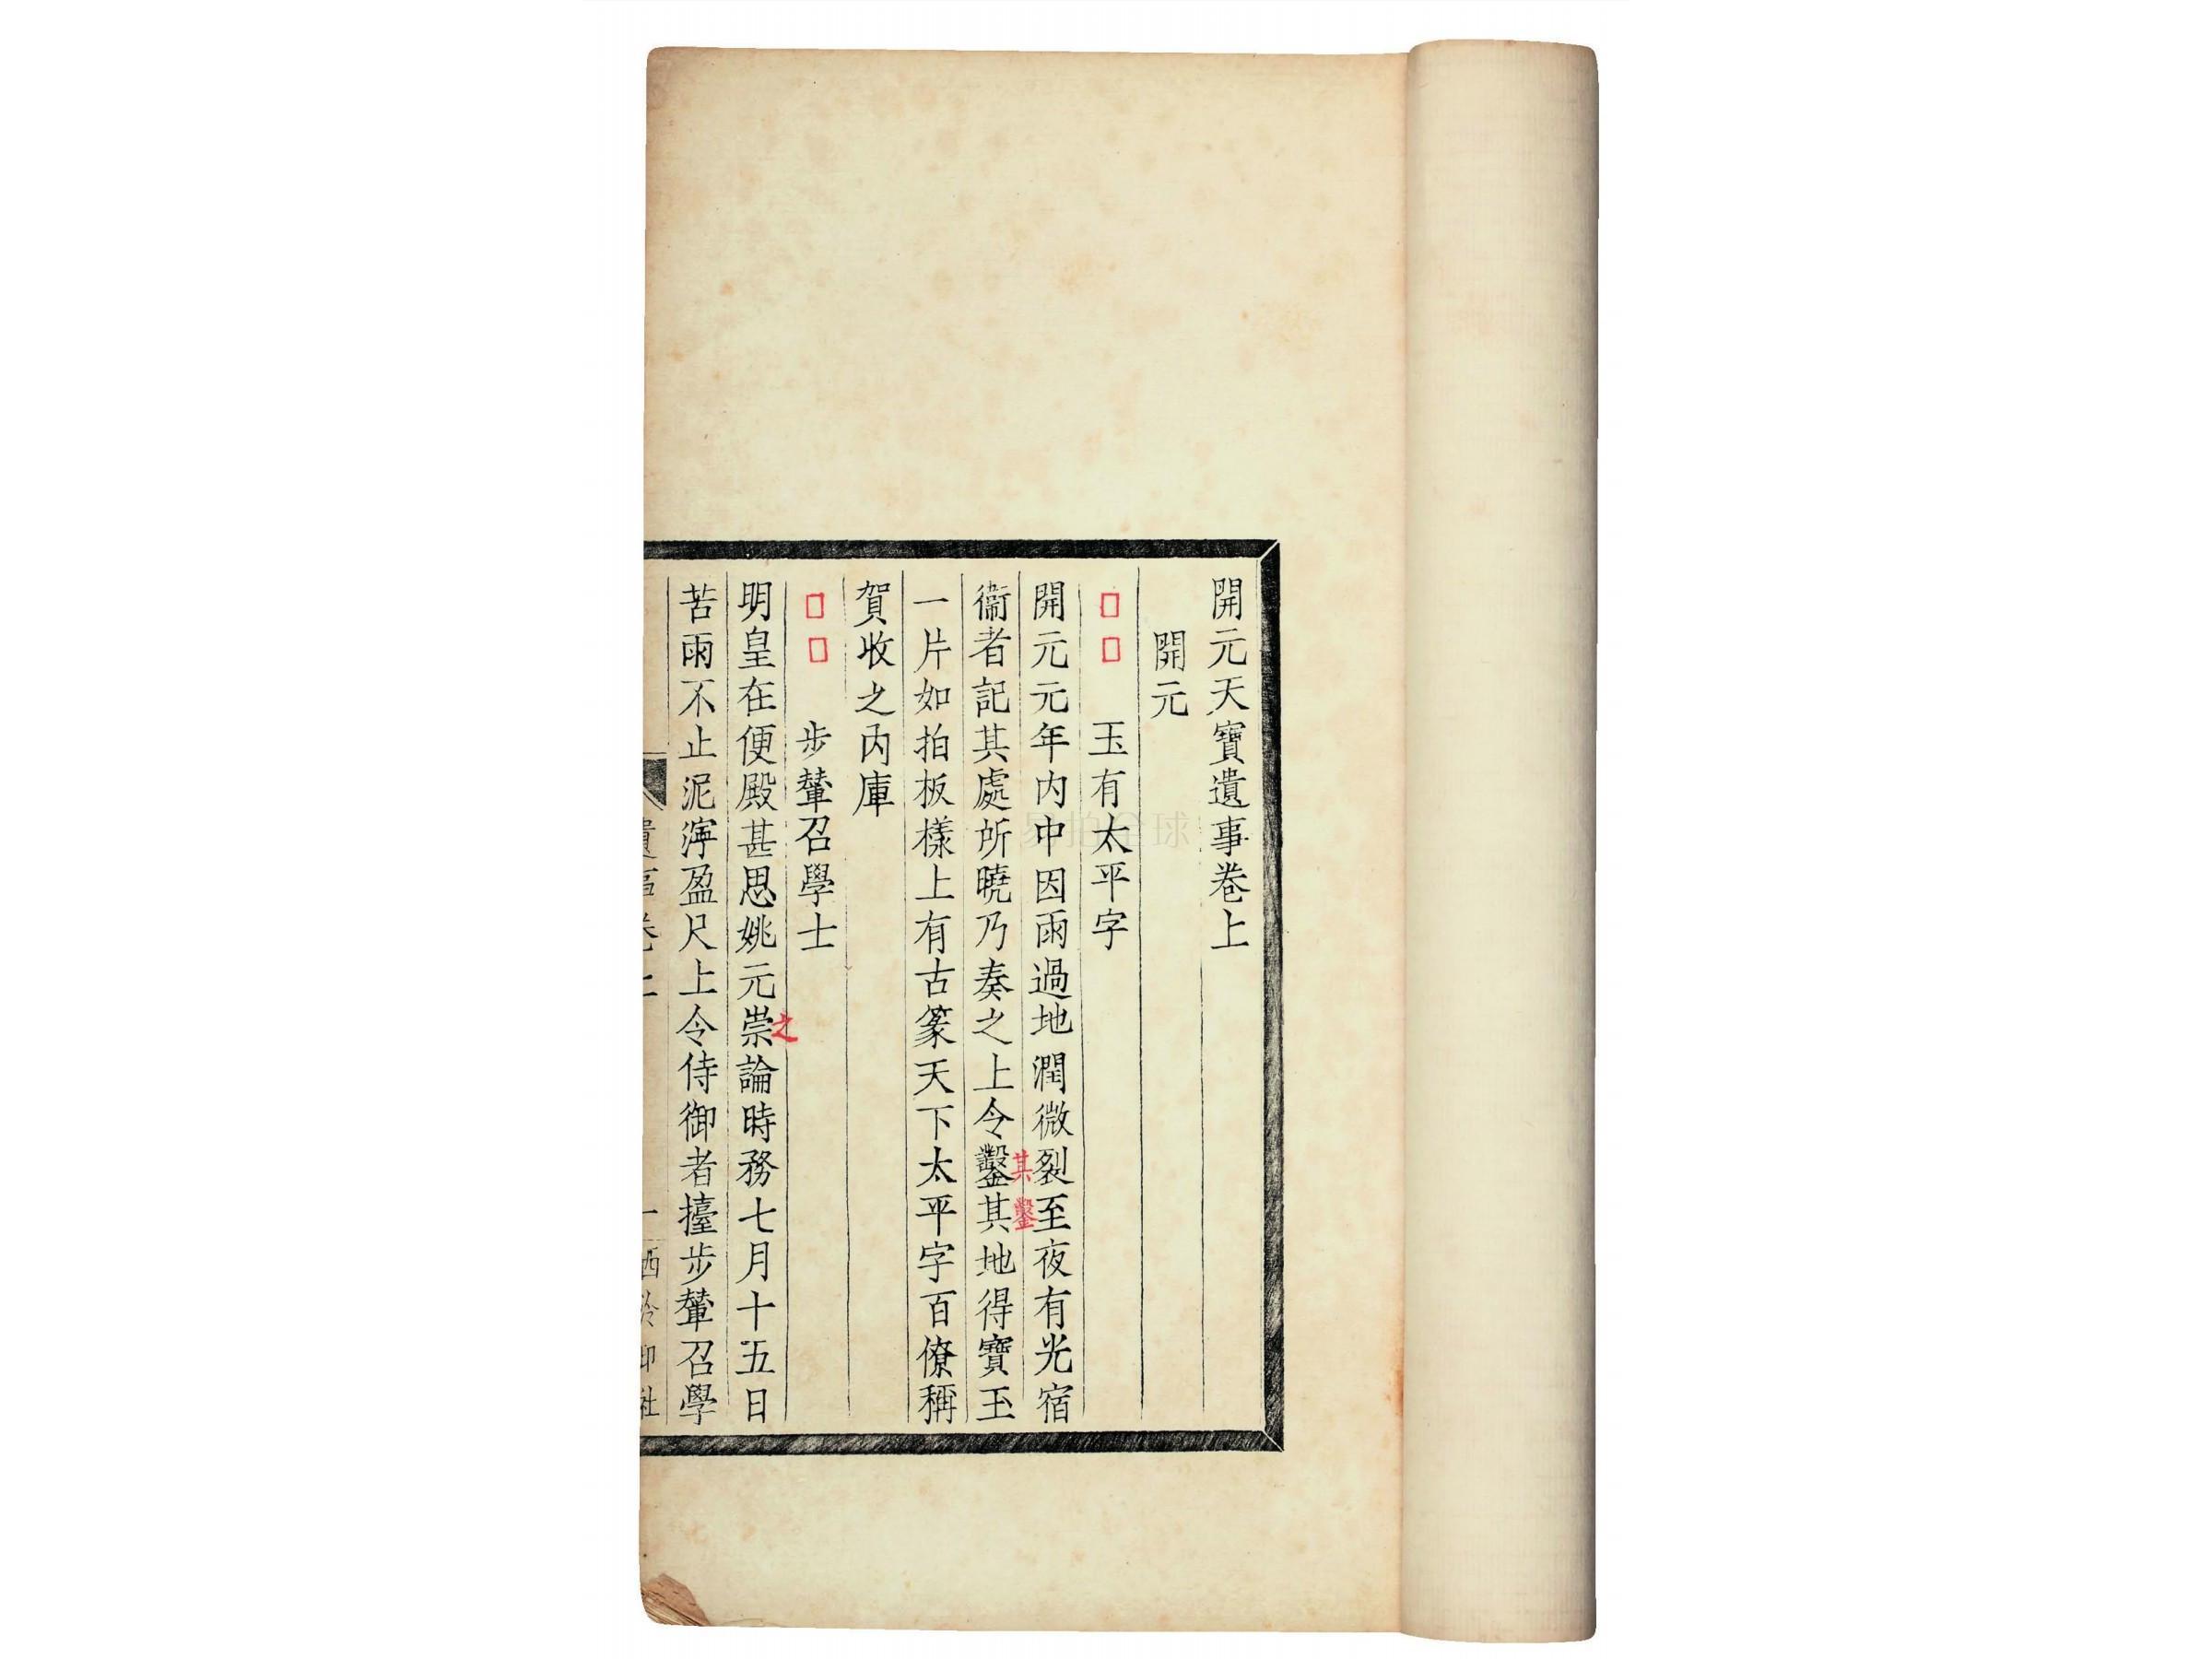 開元天寶遺事卷上
開元
玉有太平字
開元元年內中因雨過地潤微裂至夜有光宿
其鑿
衞者記其處所曉乃奏之上令鑿其地得寶玉
一片如拍板樣上有古篆天下太平字百僚稱
賀收之內庫
步輦召學士
之
明皇在便殿甚思姚元崇論時務七月十五日
苦雨不止泥濘盈尺上令侍御者擡步輦召學
遺事卷上
一
西泠印社
易拍全球